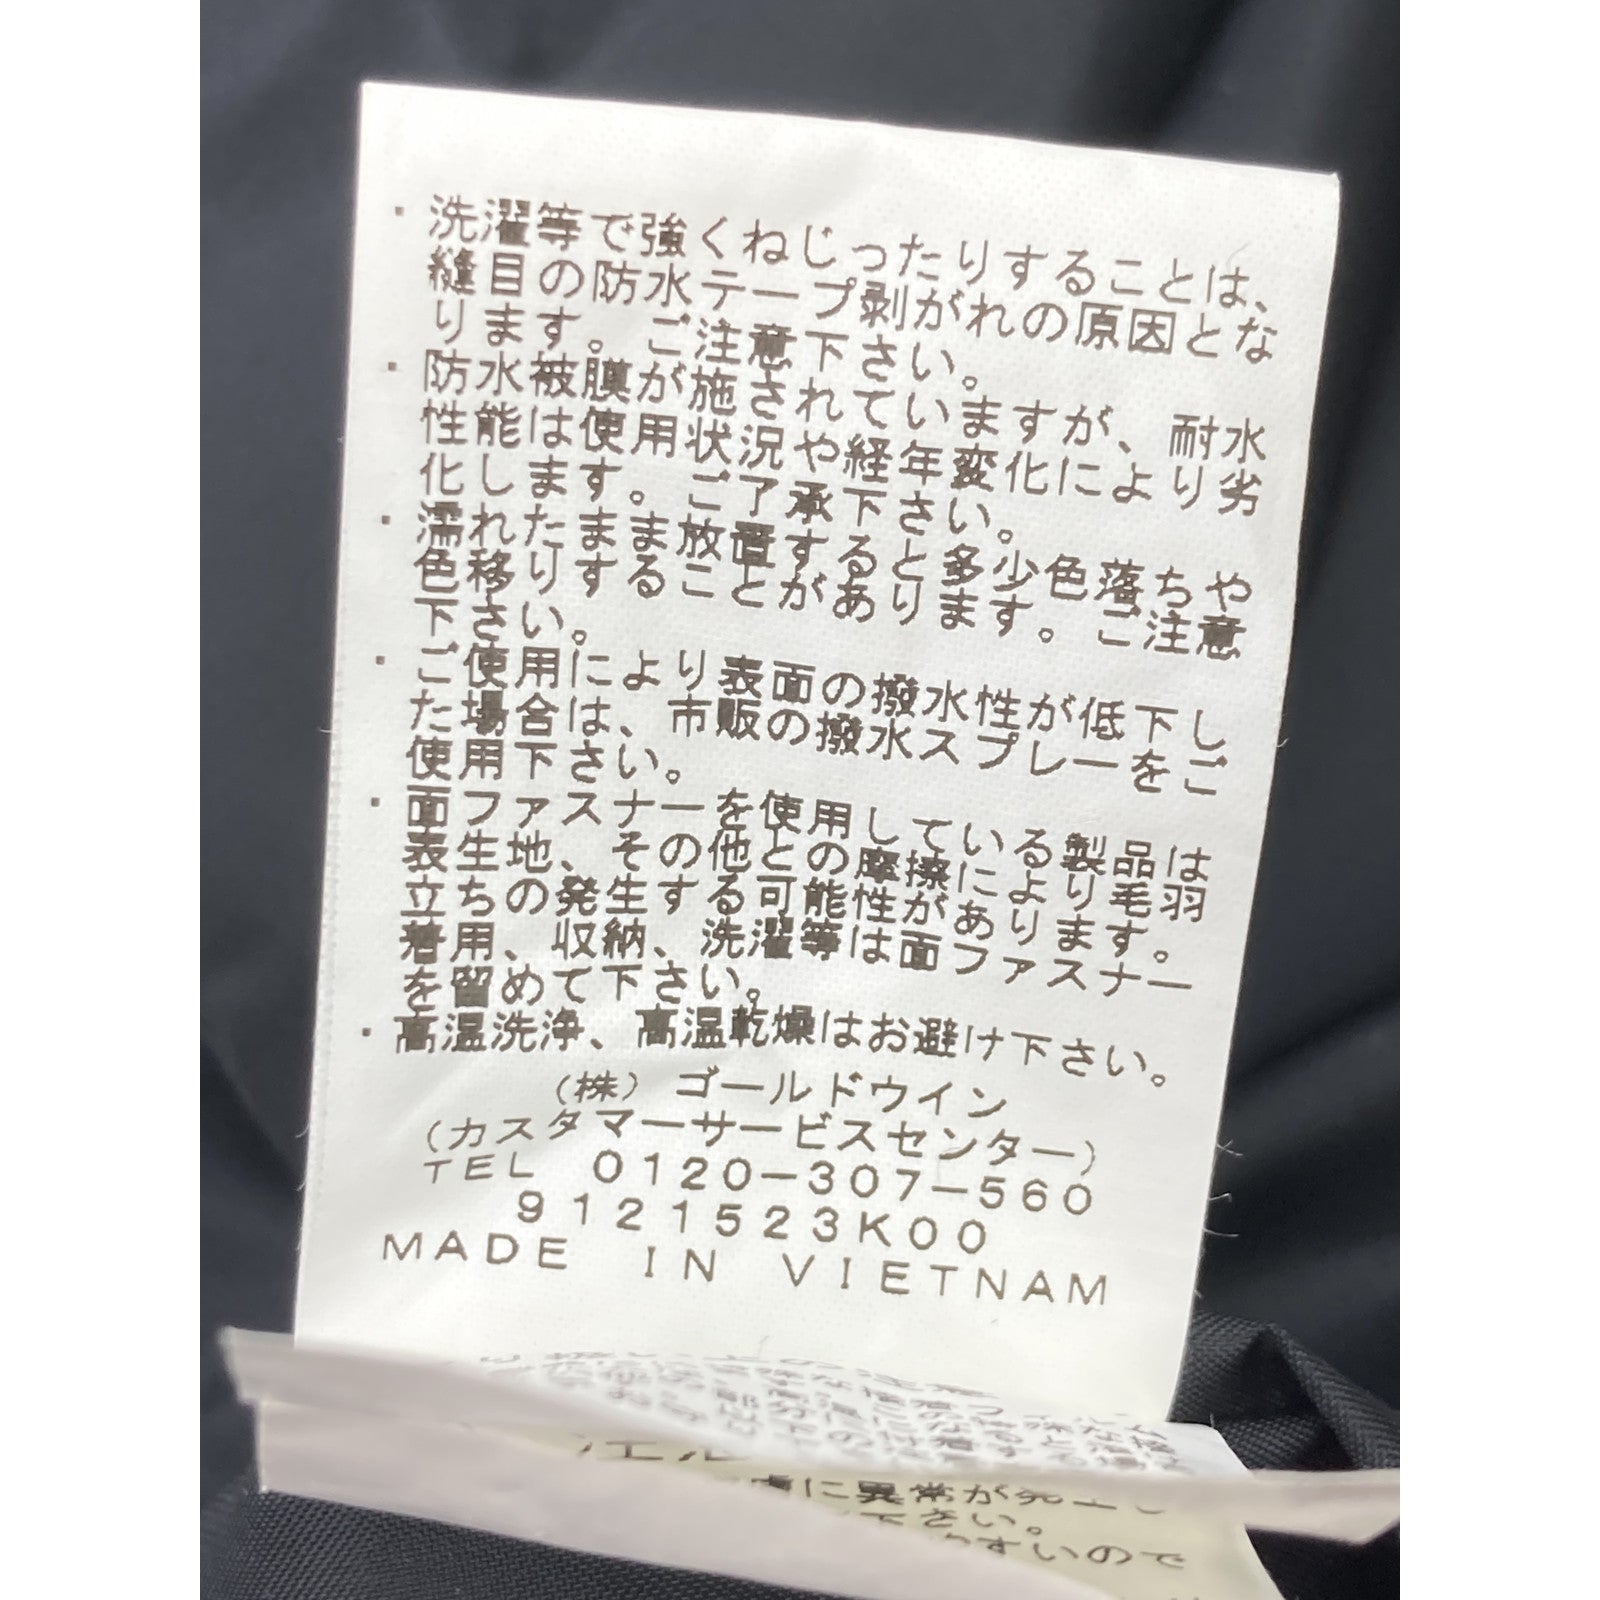 ・洗濯等で強くねじったりすることは、
縫目の防水テープ剥がれの原因とな
ります。ご注意下さい。
・防水被膜が施されていますが、耐水
性能は使用状況や経年変化により劣
化します。ご了承下さい。
・濡れたまま放置すると多少色落ちや
色移りすることがあります。ご注意
下さい。
・ご使用により表面の撥水性が低下し
た場合は、市販の撥水スプレーをご
使用下さい。
・面ファスナーを使用している製品は
表生地、その他との摩擦により毛羽
立ちの発生する可能性があります。
着用、収納、洗濯等は面ファスナー
を留めて下さい。
・高温洗浄、高温乾燥はお避け下さい。
（株）ゴールドウイン
（カスタマーサービスセンター）
TEL 0120-307-560
9121523K00
MADE IN VIETNAM
に異常が
下さい。
すいので